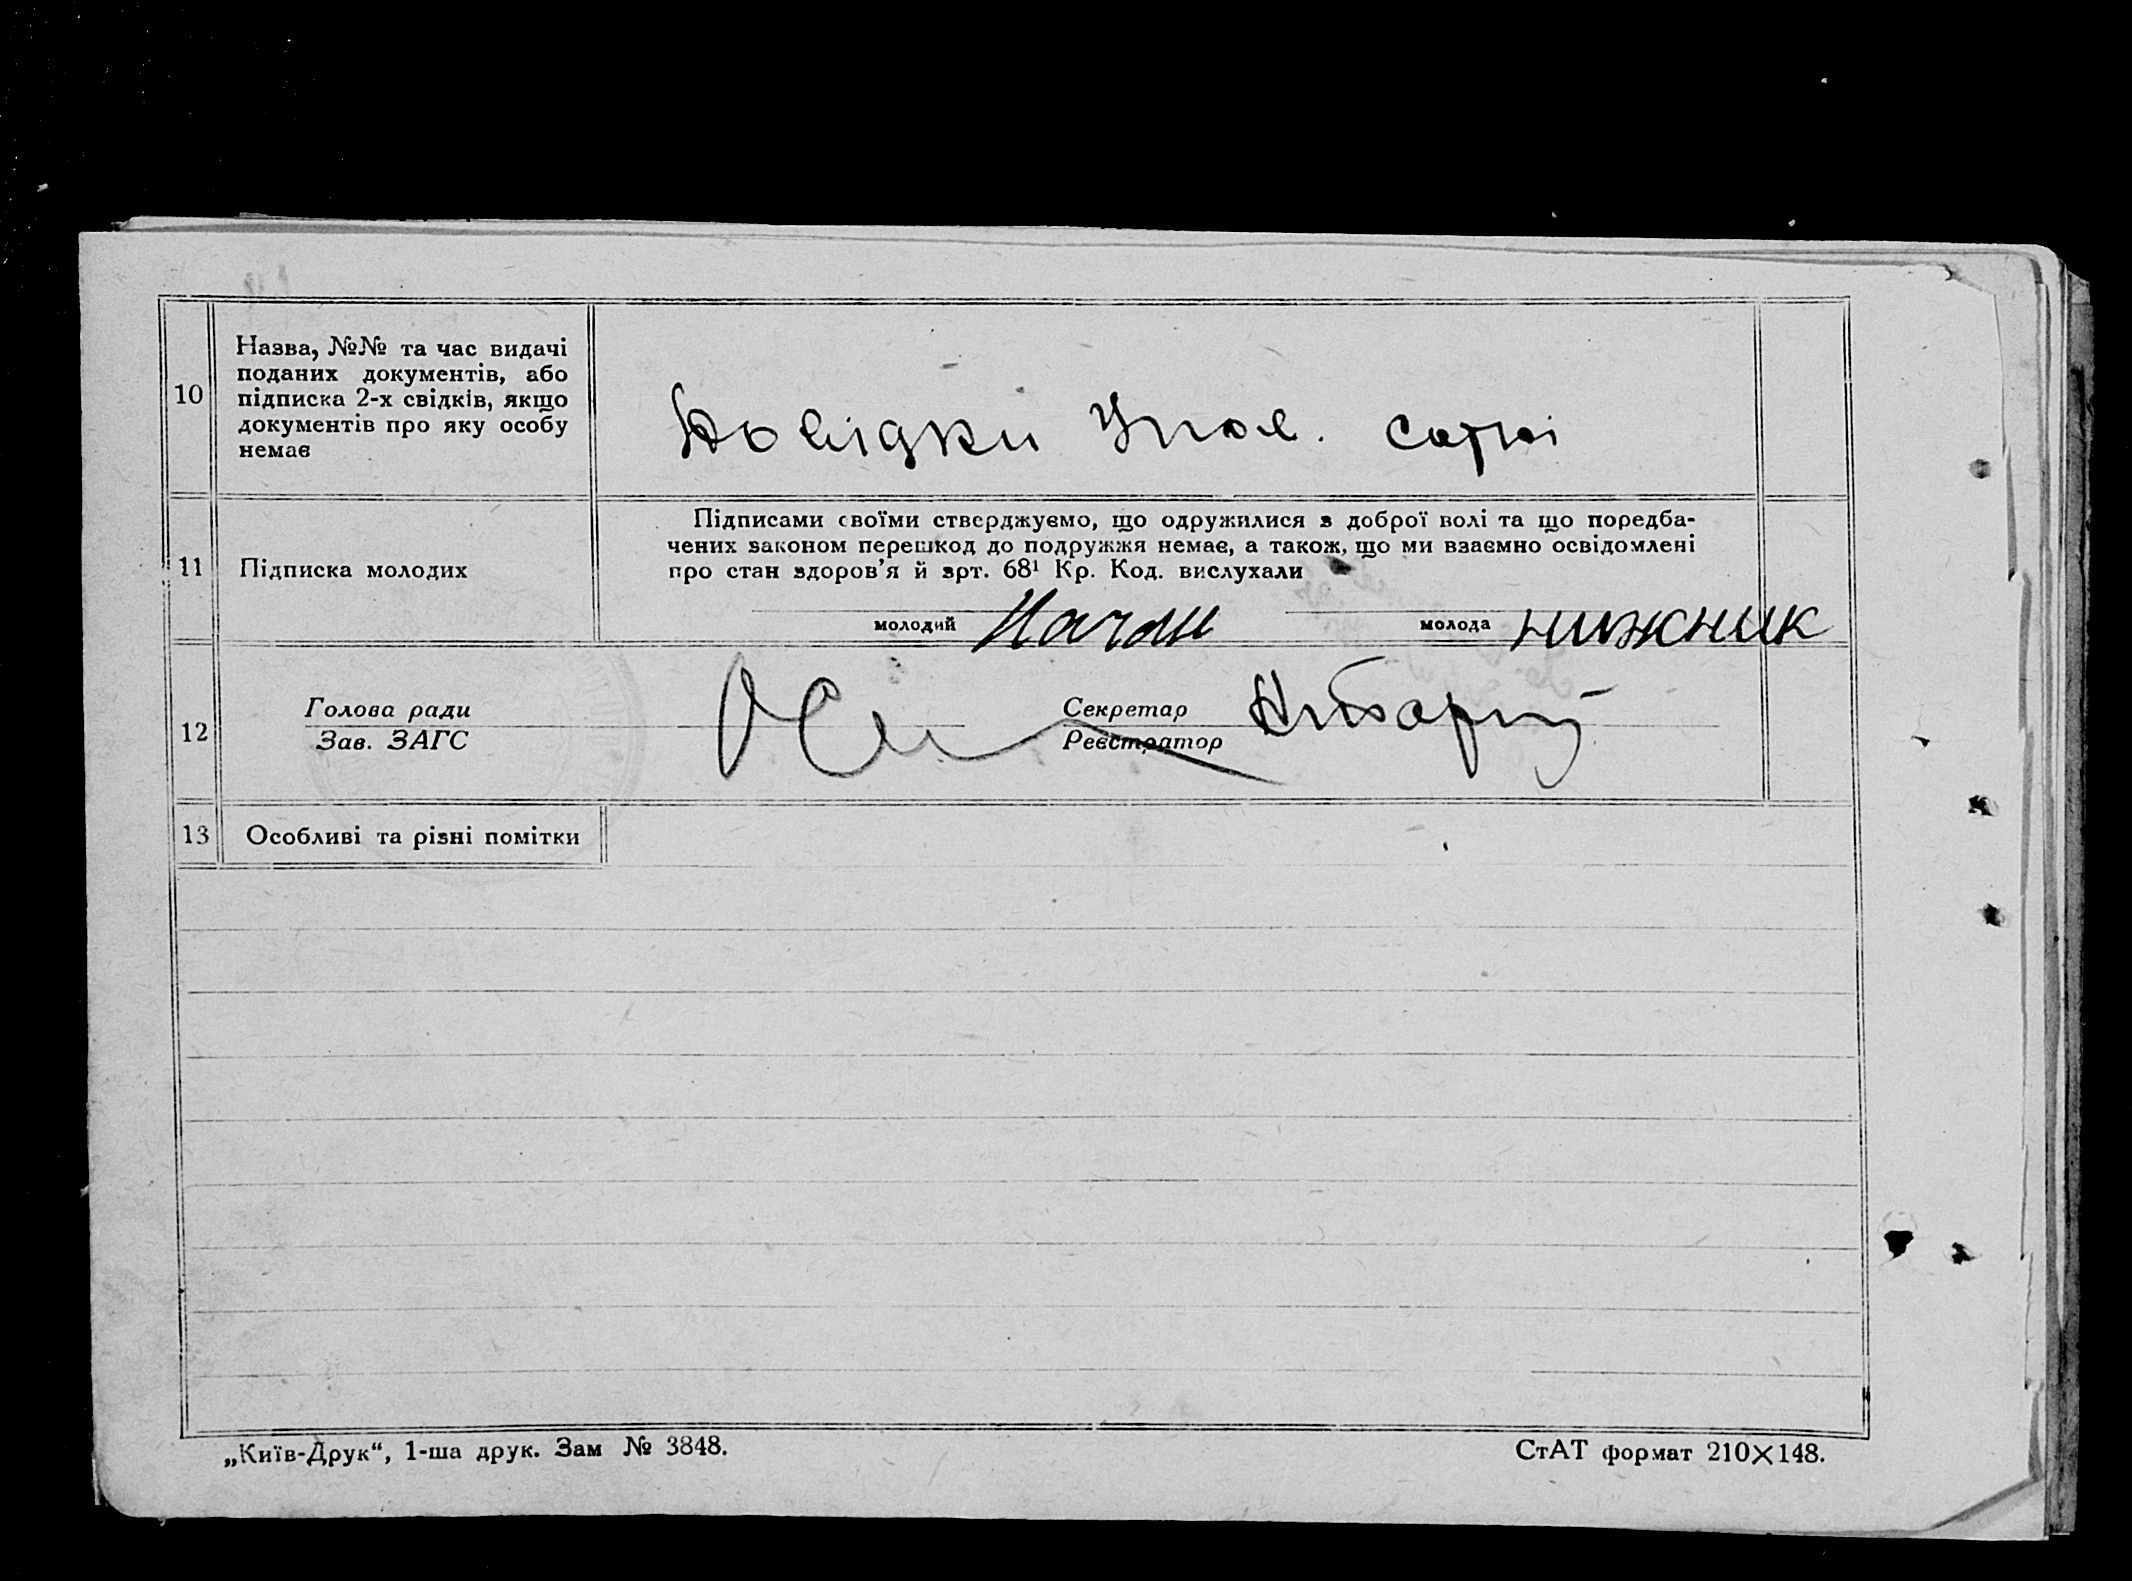 10
Назва, №№ та час видачі
поданих документів, або
підписка 2-х свідків, якщо
документів про яку особу
немає
Довідки Упов. сотні
11
Підписка молодих
Підписами своїми стверджуємо, що одружилися з доброї волі та що поредба-
чених законом перешкод до подружжя немає, а також, що ми взаємно освідомлені
про стан здоров'я й зрт. 68¹ Кр. Код. вислухали
молодий молода нижник
12
Голова ради Секретар
Зав. ЗАГС Реєстратор
13
Особливі та різні помітки
„Київ-Друк“, 1-ша друк. Зам № 3848. СтАТ формат 210×148.